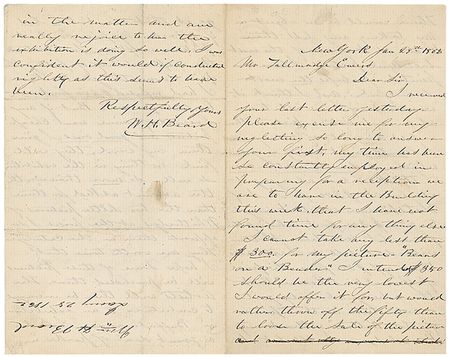 New York Jan 23rd 1862
Mr. Tallmadge Ewers
Dear Sir,
I received
your last letter yesterday
please excuse me for my
neglecting so long to answer
your first, my time has been
so constantly employed in
preparing for a reception we
are to have in the Building
this week that I have not
found time for any thing else
I cannot take any less than
$300. for my picture "Bears
on a Bender" I intended $350
should be the very lowest
I would offer it for, but would
rather throw off the fifty than
to loose the sale of the picture
in the matter and am
really rejoice to hear the
exhibition is doing so well. I was
confident it would if conducted
rightly as this seems to have
been.
Respectfully Yours
W. H. Beard
Wm H Beard
Jany 23 1862